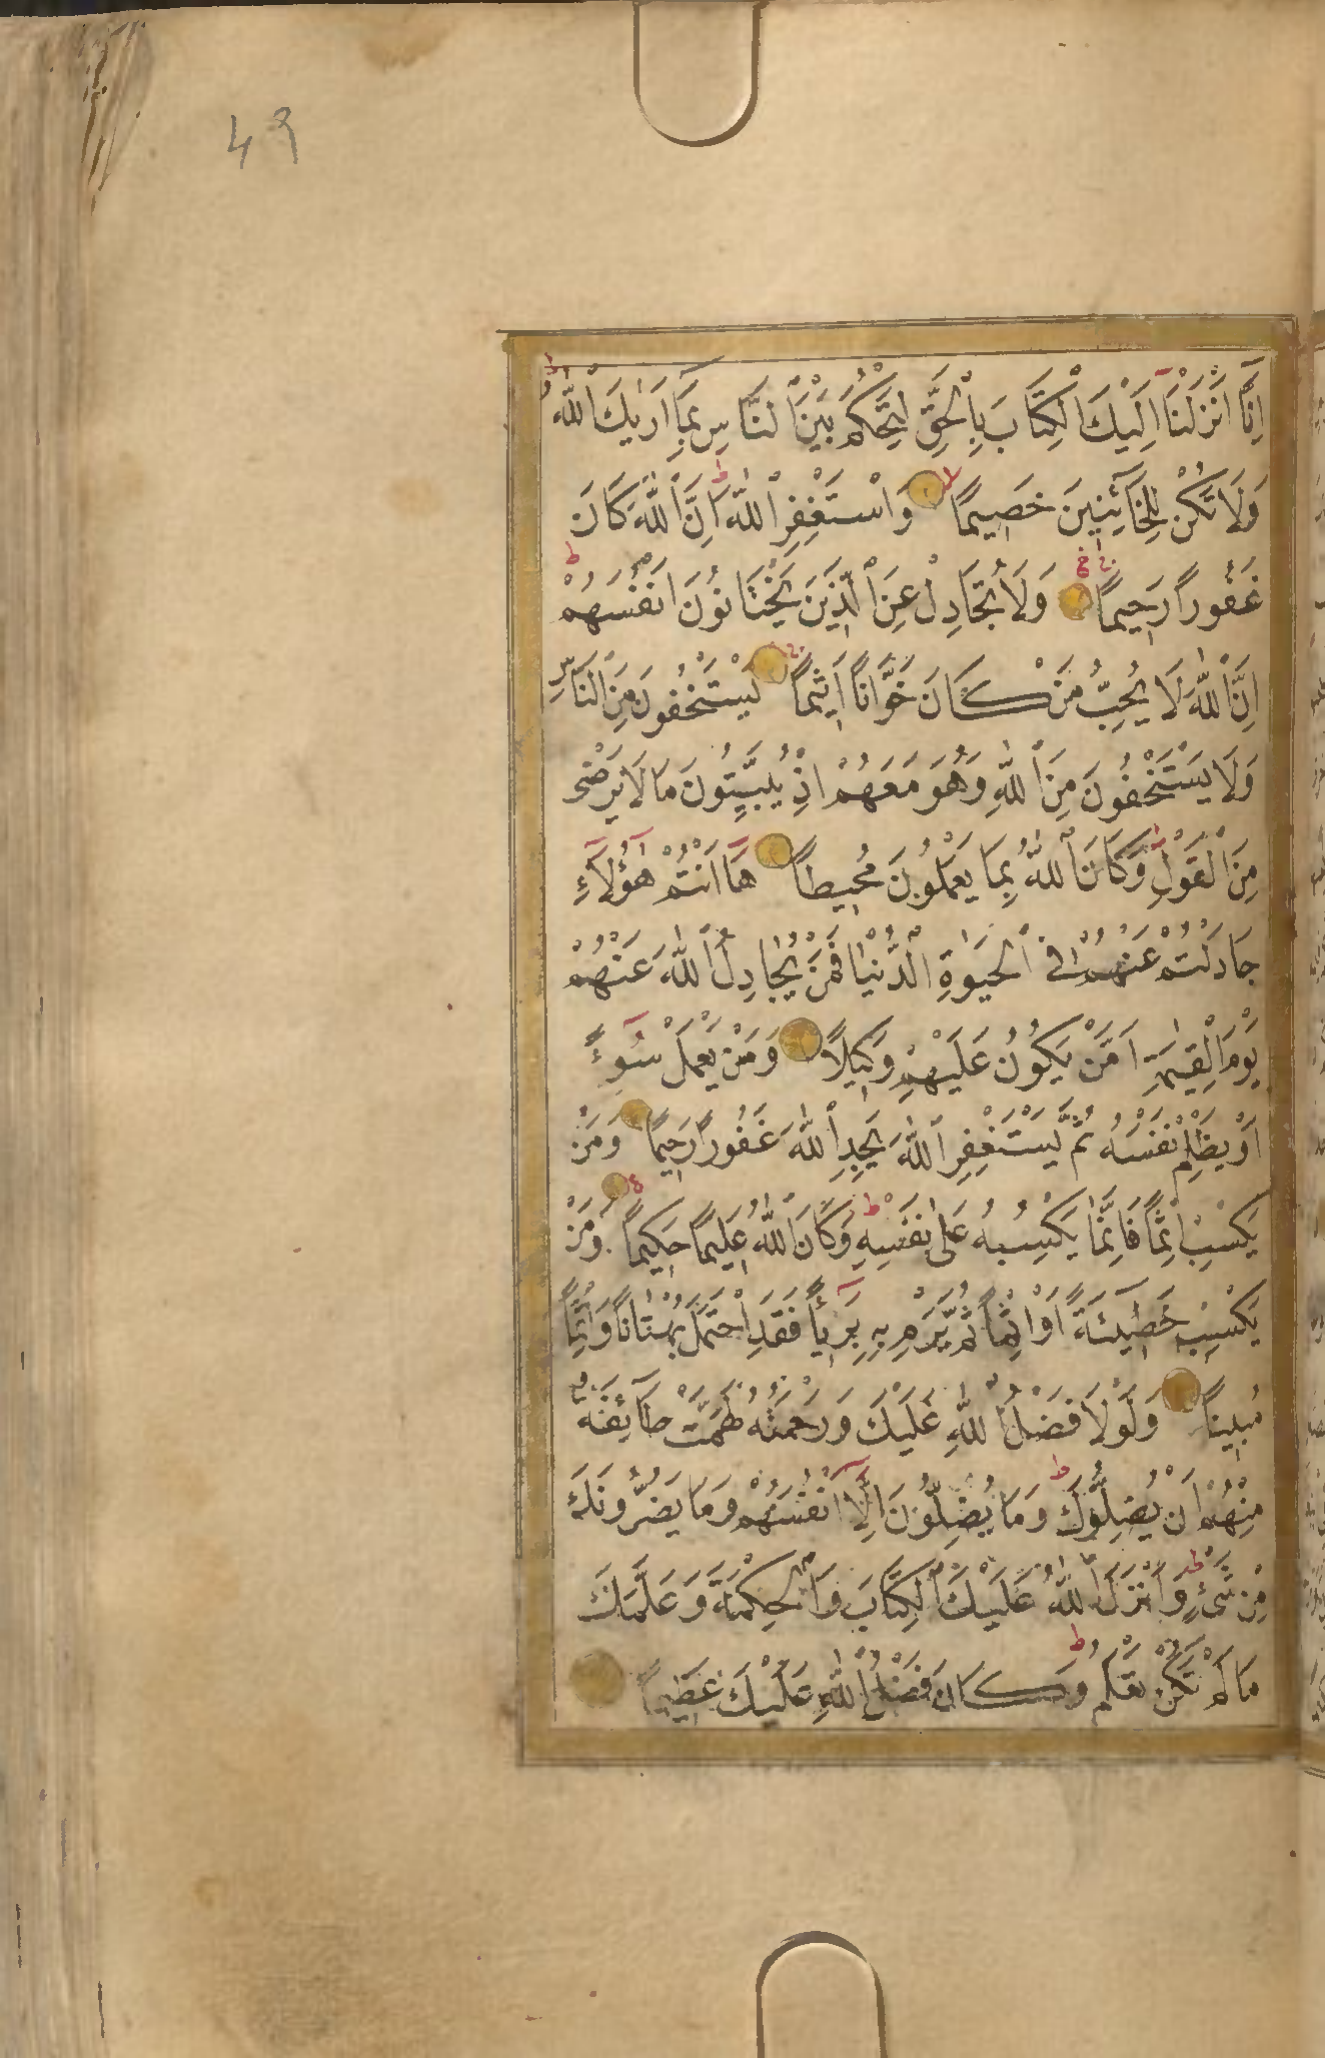 49
اِنَّٓا اَنْزَلْنَٓا اِلَيْكَ الْكِتَابَ بِالْحَقِّ لِتَحْكُمَ بَيْنَ النَّاسِ بِمَٓا اَرٰيكَ اللّٰهُ ط
وَلَا تَكُنْ لِلْخَٓائِنِينَ خَصِيمًا لا وَاسْتَغْفِرِ اللّٰهَ ط اِنَّ اللّٰهَ كَانَ
غَفُورًا رَحِيمًا ج وَلَا تُجَادِلْ عَنِ الَّذِينَ يَخْتَانُونَ اَنْفُسَهُمْ ط
اِنَّ اللّٰهَ لَا يُحِبُّ مَنْ كَانَ خَوَّانًا اَثِيمًا ج يَسْتَخْفُونَ مِنَ النَّاسِ
وَلَا يَسْتَخْفُونَ مِنَ اللّٰهِ وَهُوَ مَعَهُمْ اِذْ يُبَيِّتُونَ مَا لَا يَرْضٰى
مِنَ الْقَوْلِ ط وَكَانَ اللّٰهُ بِمَا يَعْمَلُونَ مُحِيطًا هَٓا اَنْتُمْ هٰٓؤُلَٓاءِ
جَادَلْتُمْ عَنْهُمْ فِي الْحَيٰوةِ الدُّنْيَا فَمَنْ يُجَادِلُ اللّٰهَ عَنْهُمْ
يَوْمَ الْقِيٰمَةِ اَمْ مَنْ يَكُونُ عَلَيْهِمْ وَكِيلًا وَمَنْ يَعْمَلْ سُٓوءً
اَوْ يَظْلِمْ نَفْسَهُ ثُمَّ يَسْتَغْفِرِ اللّٰهَ يَجِدِ اللّٰهَ غَفُورًا رَحِيمًا وَمَنْ
يَكْسِبْ اِثْمًا فَاِنَّمَا يَكْسِبُهُ عَلٰى نَفْسِهِ ط وَكَانَ اللّٰهُ عَلِيمًا حَكِيمًا وَمَنْ
يَكْسِبْ خَطِٓيئَةً اَوْ اِثْمًا ثُمَّ يَرْمِ بِهِ بَرِٓيئًا فَقَدِ احْتَمَلَ بُهْتَانًا وَاِثْمًا
مُبِينًا وَلَوْلَا فَضْلُ اللّٰهِ عَلَيْكَ وَرَحْمَتُهُ لَهَمَّتْ طَٓائِفَةٌ
مِنْهُمْ اَنْ يُضِلُّوكَ ط وَمَا يُضِلُّونَ اِلَّٓا اَنْفُسَهُمْ وَمَا يَضُرُّونَكَ
مِنْ شَيْءٍ ط وَاَنْزَلَ اللّٰهُ عَلَيْكَ الْكِتَابَ وَالْحِكْمَةَ وَعَلَّمَكَ
مَا لَمْ تَكُنْ تَعْلَمُ ط وَكَانَ فَضْلُ اللّٰهِ عَلَيْكَ عَظِيمًا